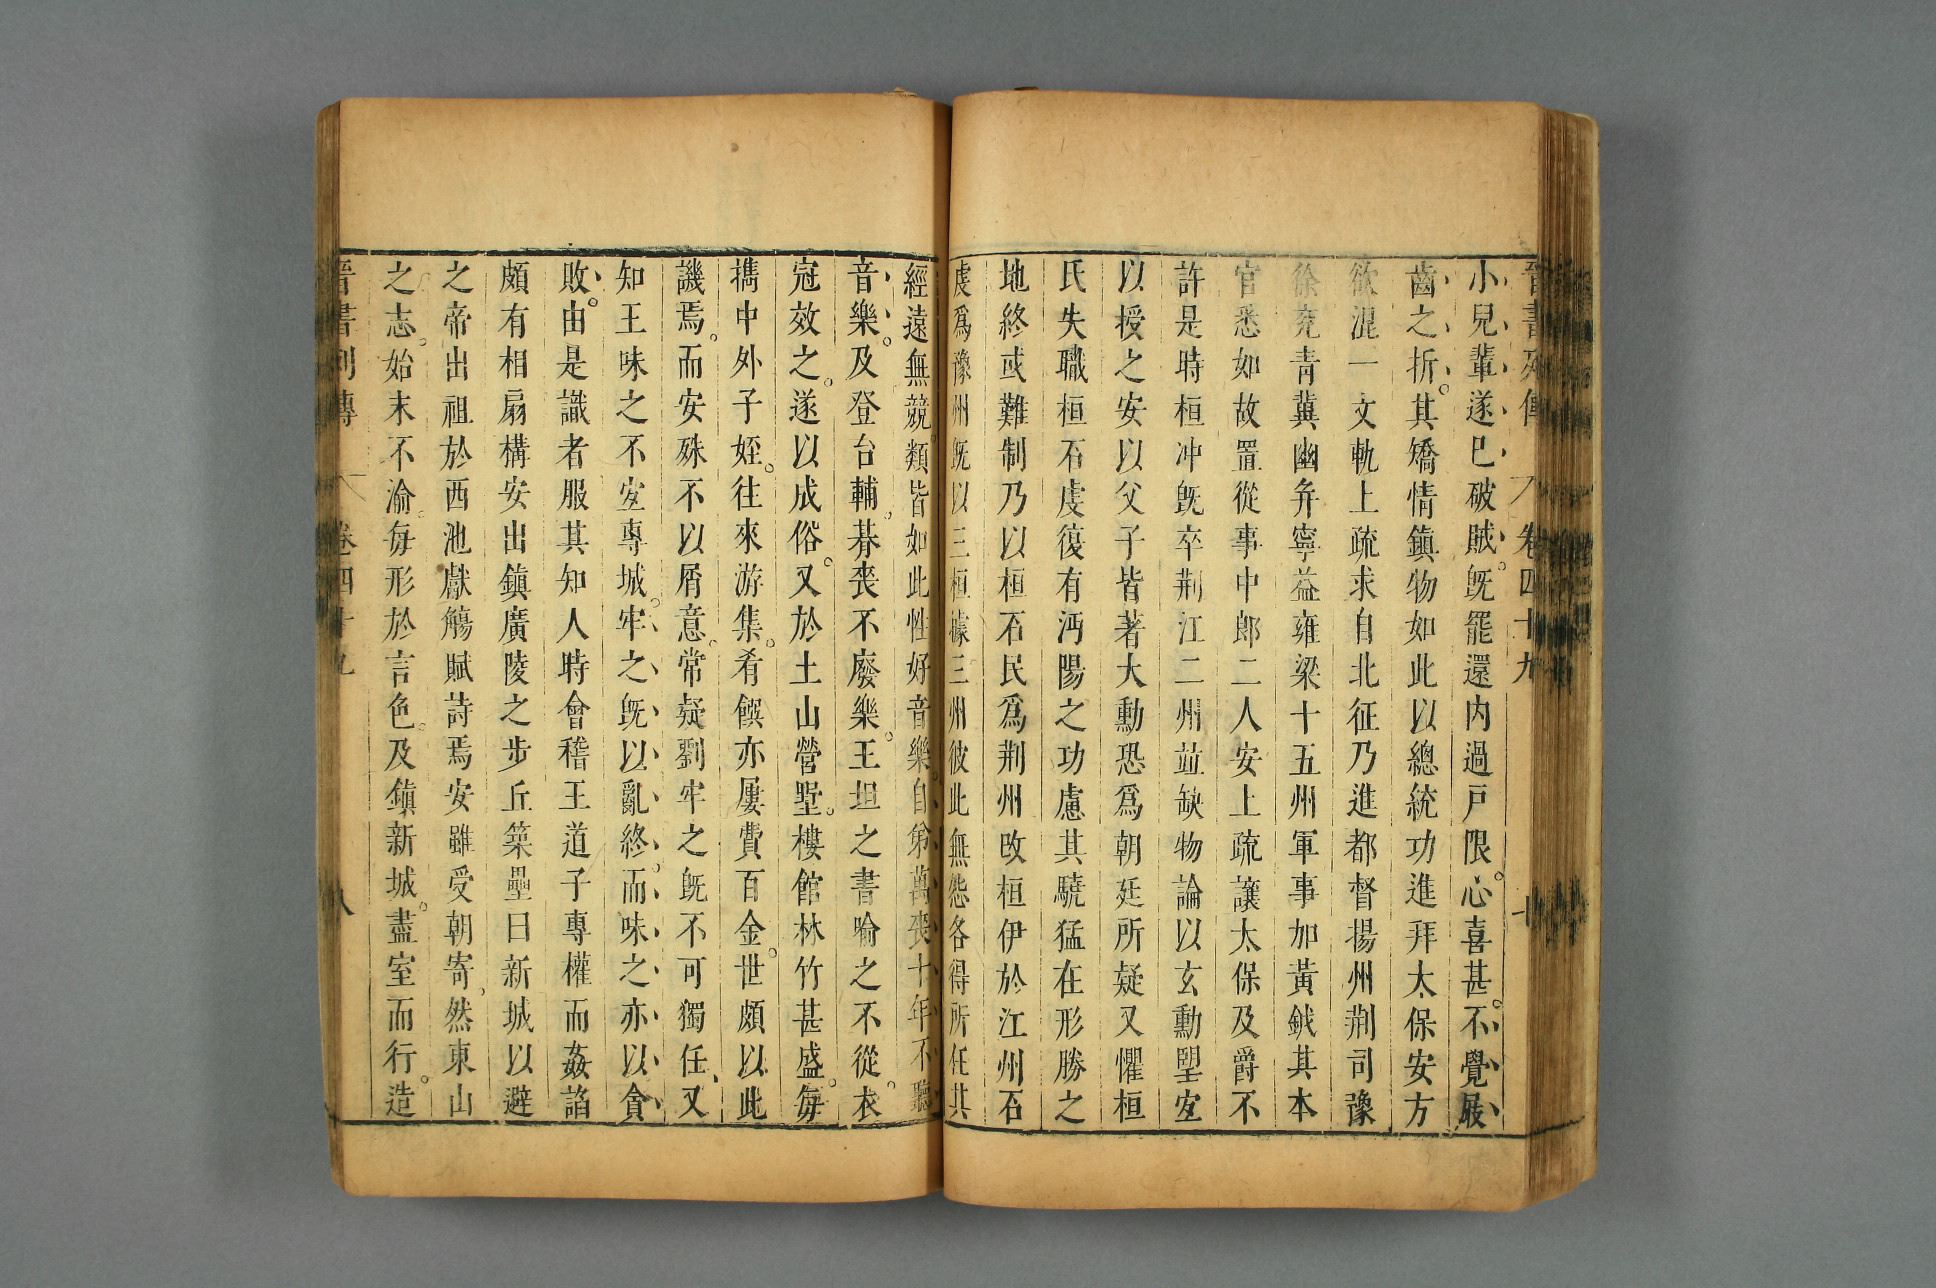 晉書列傳 卷四十九 七
小兒輩遂已破賊。旣罷還內過戶限。心喜甚。不覺屐
齒之折。其矯情鎮物如此以總統功進拜太保安方
欲混一文軌上疏求自北征乃進都督揚州荆司豫
徐兗青冀幽幷寧益雍梁十五州軍事加黃鉞其本
官悉如故置從事中郎二人安上疏讓太保及爵不
許是時桓冲旣卒荆江二州竝缺物論以玄勳朢宐
以授之安以父子皆著大勳恐爲朝廷所疑又懼桓
氏失職桓石虔復有沔陽之功慮其驍猛在形勝之
地終或難制乃以桓石民爲荆州改桓伊於江州石
虔爲豫州旣以三桓據三州彼此無怨各得所任其
經遠無競。類皆如此性好音樂。自弟萬喪十年不聽
音樂。及登台輔。朞喪不廢樂。王坦之書喻之不從。衣
冠效之。遂以成俗。又於土山營墅。樓館林竹甚盛。每
攜中外子姪。往來游集。肴饌亦屢費百金。世頗以此
譏焉。而安殊不以屑意。常疑劉牢之旣不可獨任、又
知王味之不宐專城。牢之旣以亂終。而味之亦以貪
敗。由是識者服其知人時會稽王道子專權而姦諂
頗有相扇構安出鎮廣陵之步丘築壘曰新城以避
之帝出祖於西池獻觴賦詩焉安雖受朝寄、然東山
之志。始末不渝。每形於言色。及鎮新城。盡室而行。造
晉書列傳 卷四十九 八